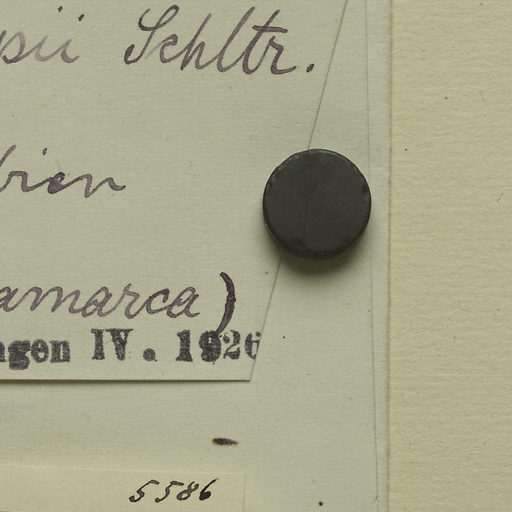 psii Schltr.
bien
amarca)
ngen IV. 1926
5586